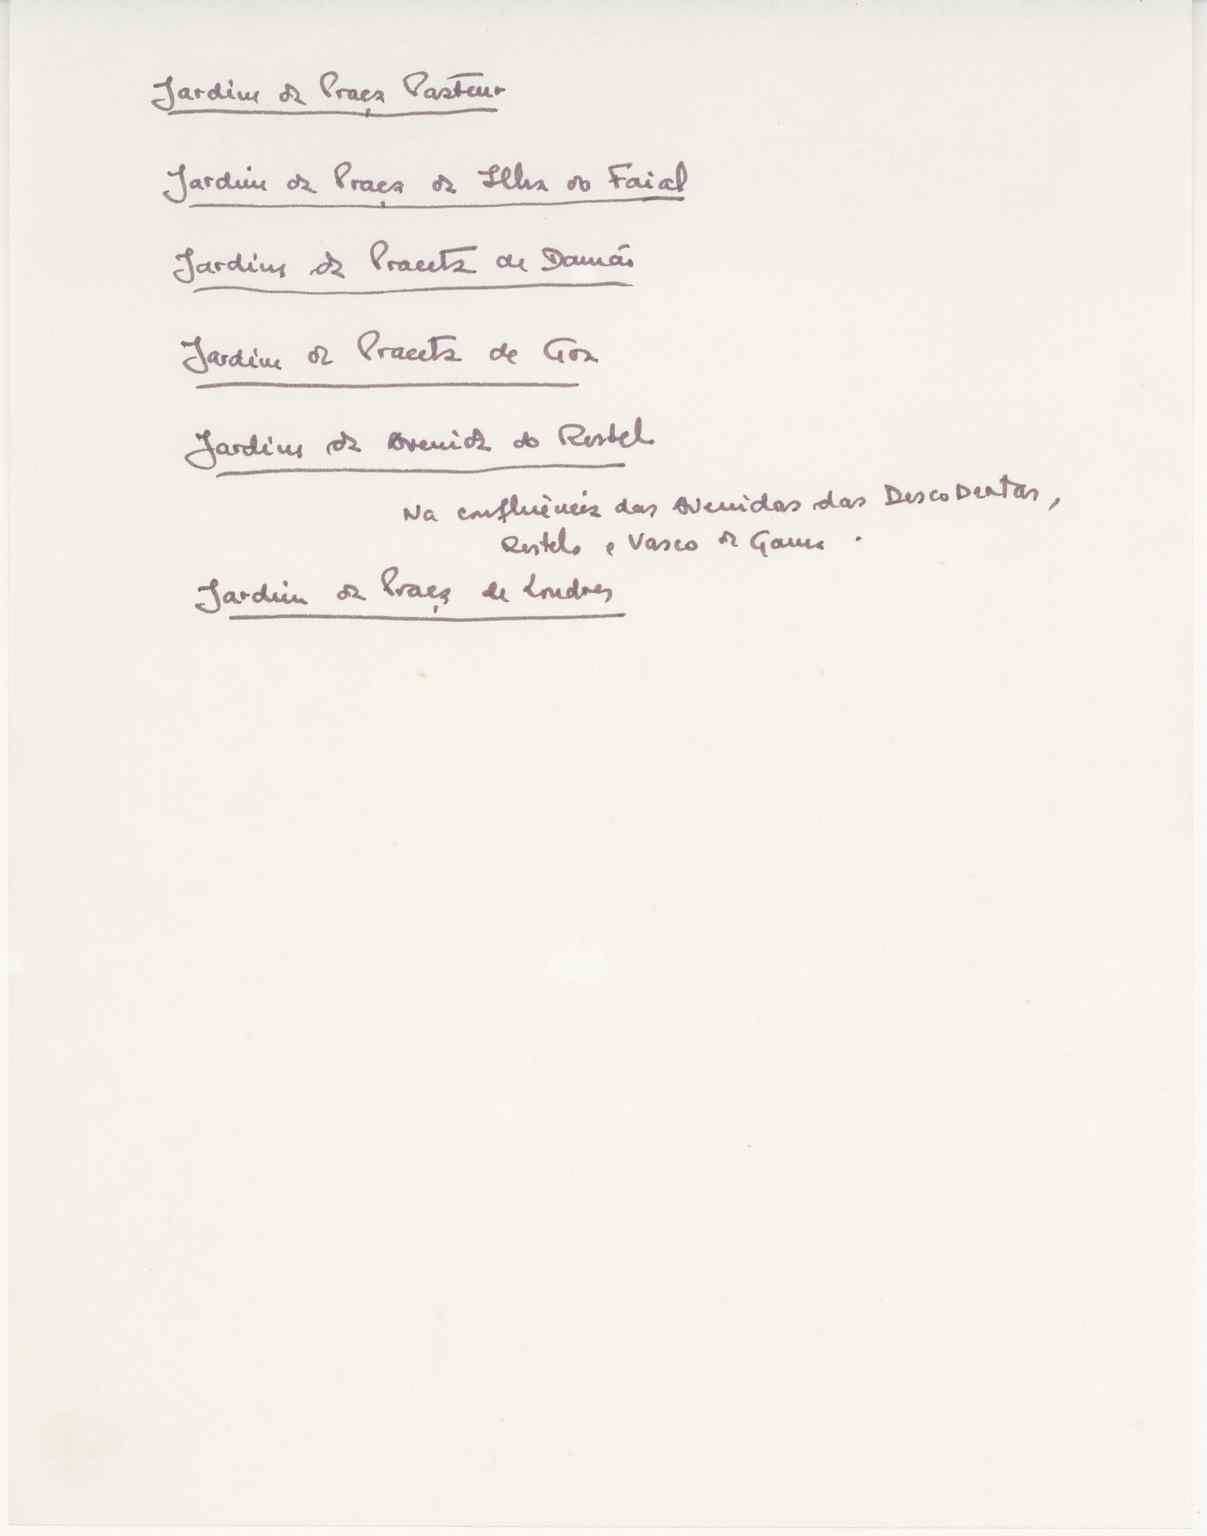 Jardim da Praça Pasteur
Jardim da Praça da Ilha do Faial
Jardim da Praceta de Damão
Jardim da Praceta de Goa
Jardim da Avenida do Restelo
Na confluência das Avenidas das Descobertas,
Restelo e Vasco da Gama .
Jardim da Praça de Londres